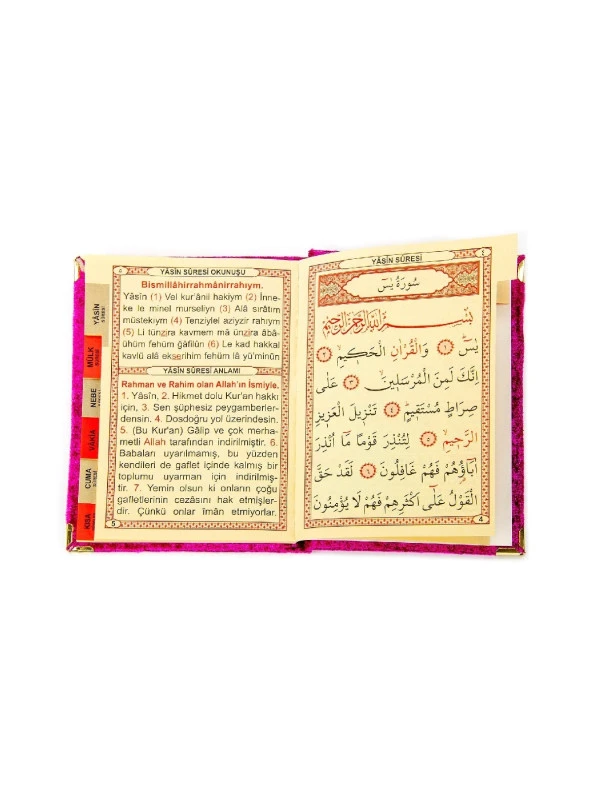 YÂSÎN SÛRESİ
سُورَةُ يٰسٓ
بِسْمِ اللّٰهِ الرَّحْمٰنِ الرَّحِيمِ
يٰسٓ ﴿١﴾ وَالْقُرْاٰنِ الْحَكِيمِ ﴿٢﴾
اِنَّكَ لَمِنَ الْمُرْسَلِينَ ﴿٣﴾ عَلٰى
صِرَاطٍ مُسْتَقِيمٍ ﴿٤﴾ تَنْزِيلَ الْعَزِيزِ
الرَّحِيمِ ﴿٥﴾ لِتُنْذِرَ قَوْمًا مَٓا اُنْذِرَ
اٰبَٓاؤُ۬هُمْ فَهُمْ غَافِلُونَ ﴿٦﴾ لَقَدْ حَقَّ
الْقَوْلُ عَلٰٓى اَكْثَرِهِمْ فَهُمْ لَا يُؤْمِنُونَ
4
YÂSÎN SÛRESİ OKUNUŞU
Bismillâhirrahmânirrahıym.
Yâsîn (1) Vel kur'ânil hakiym (2) İnne-
ke le minel murseliyn (3) Alâ sırâtım
müstekıym (4) Tenziylel aziyzir rahıym
(5) Li tünzira kavmem mâ ünzira âbâ-
ühüm fehüm ğâfilûn (6) Le kad hakkal
kavlü alâ ekserihim fehüm lâ yü'minûn
YÂSÎN SÛRESİ ANLAMI
Rahman ve Rahim olan Allah'ın İsmiyle.
1. Yâsîn, 2. Hikmet dolu Kur'an hakkı
için, 3. Sen şüphesiz peygamberler-
densin. 4. Dosdoğru yol üzerindesin.
5. (Bu Kur'an) Gâlip ve çok merha-
metli Allah tarafından indirilmiştir. 6.
Babaları uyarılmamış, bu yüzden
kendileri de gaflet içinde kalmış bir
toplumu uyarman için indirilmiş-
tir. 7. Yemin olsun ki onların çoğu
gafletlerinin cezasını hak etmişler-
dir. Çünkü onlar îmân etmiyorlar.
5
YÂSİN
SÛRESİ
MÜLK
SÛRESİ
NEBE
SÛRESİ
VÂKIA
CUMA
SÛRESİ
KISA